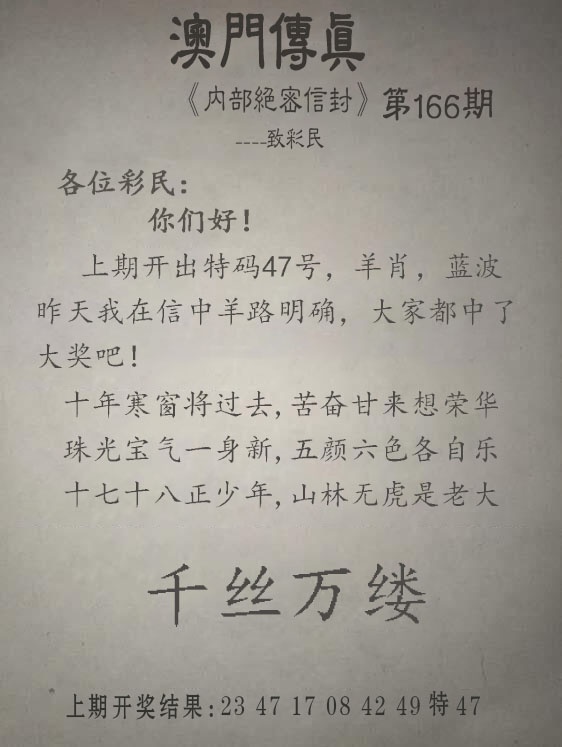 澳門傳眞
《内部絕密信封》第166期
----致彩民
各位彩民：
你们好！
上期开出特码47号，羊肖，蓝波
昨天我在信中羊路明确，大家都中了
大奖吧！
十年寒窗将过去,苦奋甘来想荣华
珠光宝气一身新,五颜六色各自乐
十七十八正少年,山林无虎是老大
千丝万缕
上期开奖结果:23 47 17 08 42 49特47